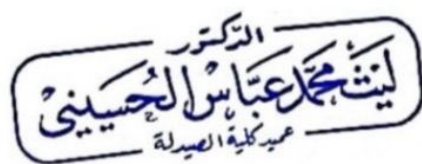 الدكتور
ليث محمد عباس الحسيني
عميد كلية الصيدلة